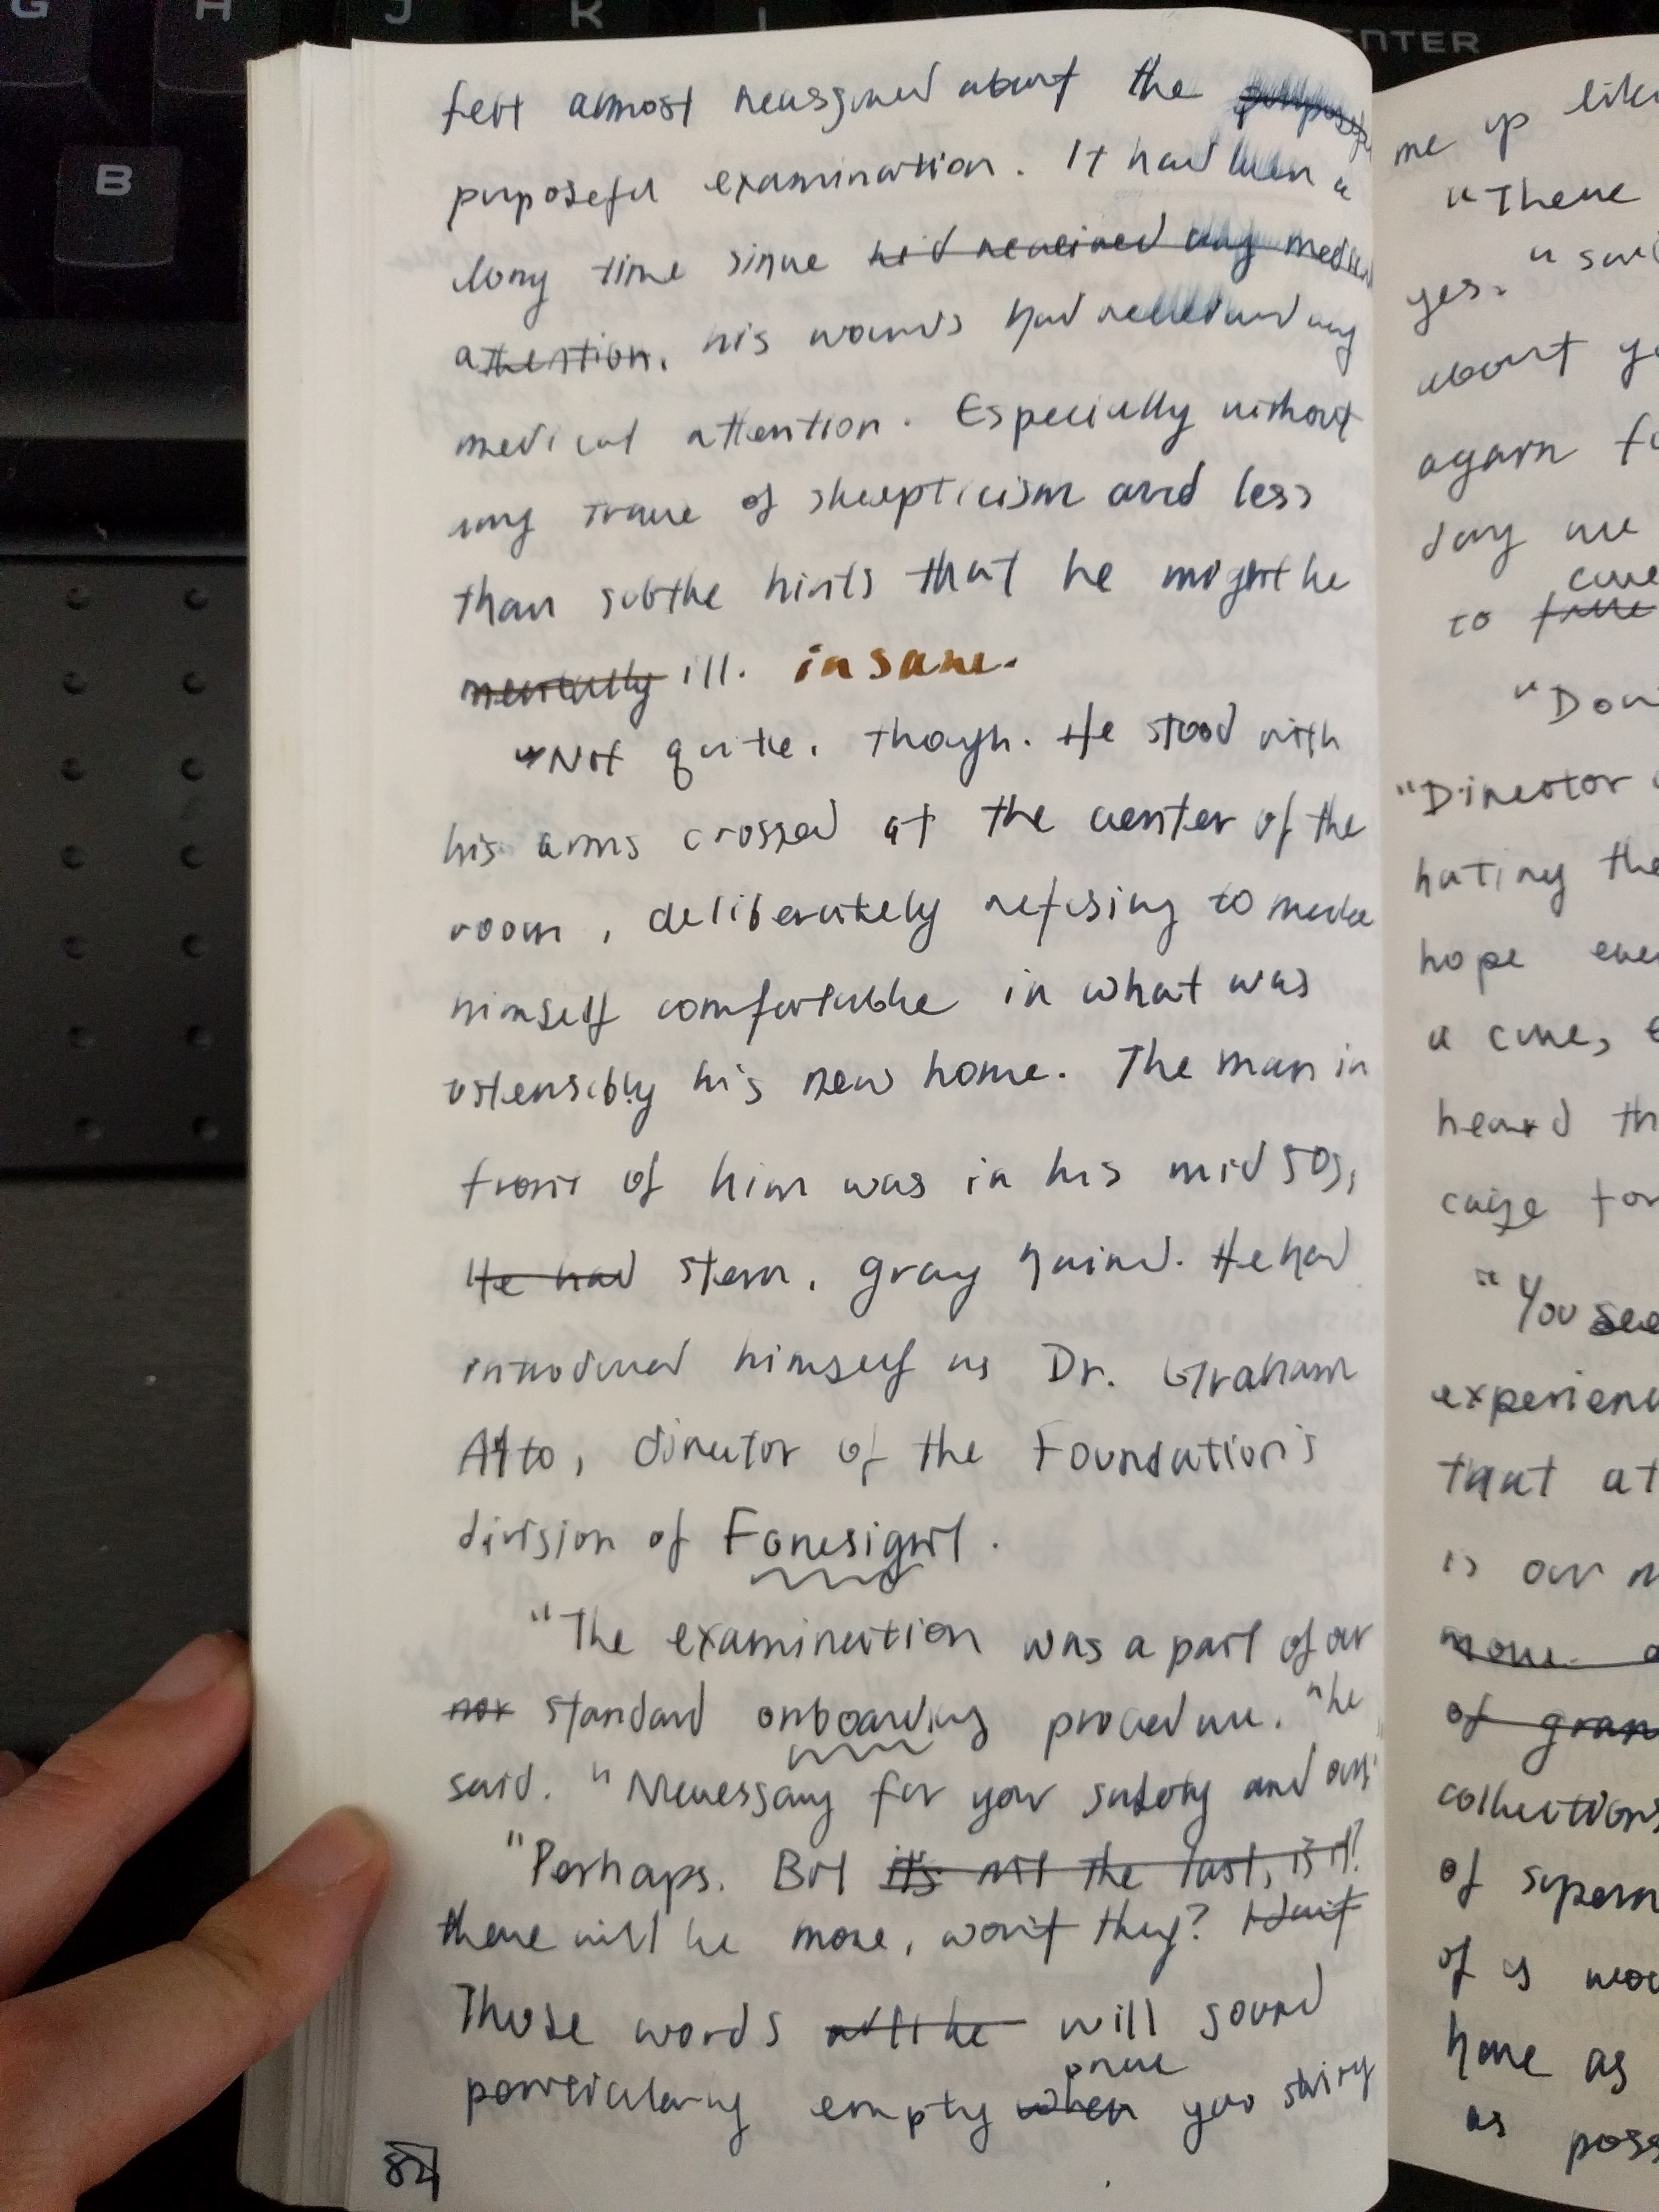 G H J K L
ENTER
B
felt almost reassured about the purposeful
purposeful examination. It had been a
long time since he'd received any medical
attention. his wounds had received any
medical attention. Especially without
any trace of skepticism and less
than subtle hints that he might be
mentally ill. insane.
"Not quite, though. He stood with
his arms crossed at the center of the
room, deliberately refusing to make
himself comfortable in what was
ostensibly his new home. The man in
front of him was in his mid 50s,
He had stern, gray haired. He had
introduced himself as Dr. Graham
Alto, director of the Foundation's
division of Foresight.
"The examination was a part of our
not standard onboarding procedure. "he
said. "Necessary for your safety and ours
"Perhaps. But it's not the last, is it?
there will be more, won't they? Wait
Those words will will sound
once
particularly empty when you string
84
me up like
"There
yes. " said
about yo
again fo
day we
cure
to
"Don'
"Director
hating the
hope eve
a cure, e
heard th
cage for
"You see
experienc
that at
is our m
more
of gran
collections
of supern
of is wor
here as
as poss